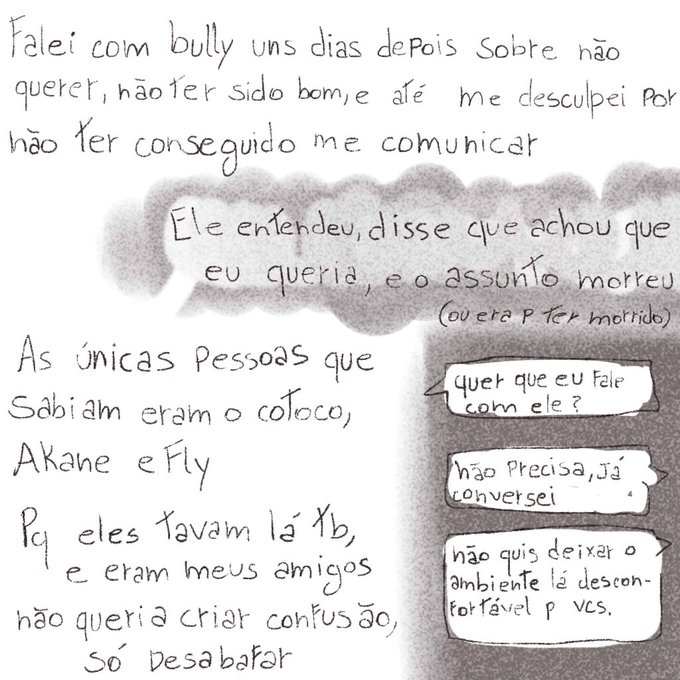 Falei com bully uns dias depois sobre não
querer, não ter sido bom, e até me desculpei por
não ter conseguido me comunicar
Ele entendeu, disse que achou que
eu queria, e o assunto morreu
(ou era p ter morrido)
As únicas pessoas que
sabiam eram o cotoco,
Akane e Fly
Pq eles tavam lá tb,
e eram meus amigos
não queria criar confusão,
só desabafar
quer que eu fale
com ele?
não precisa, já
conversei
não quis deixar o
ambiente lá descon-
fortável p vcs.